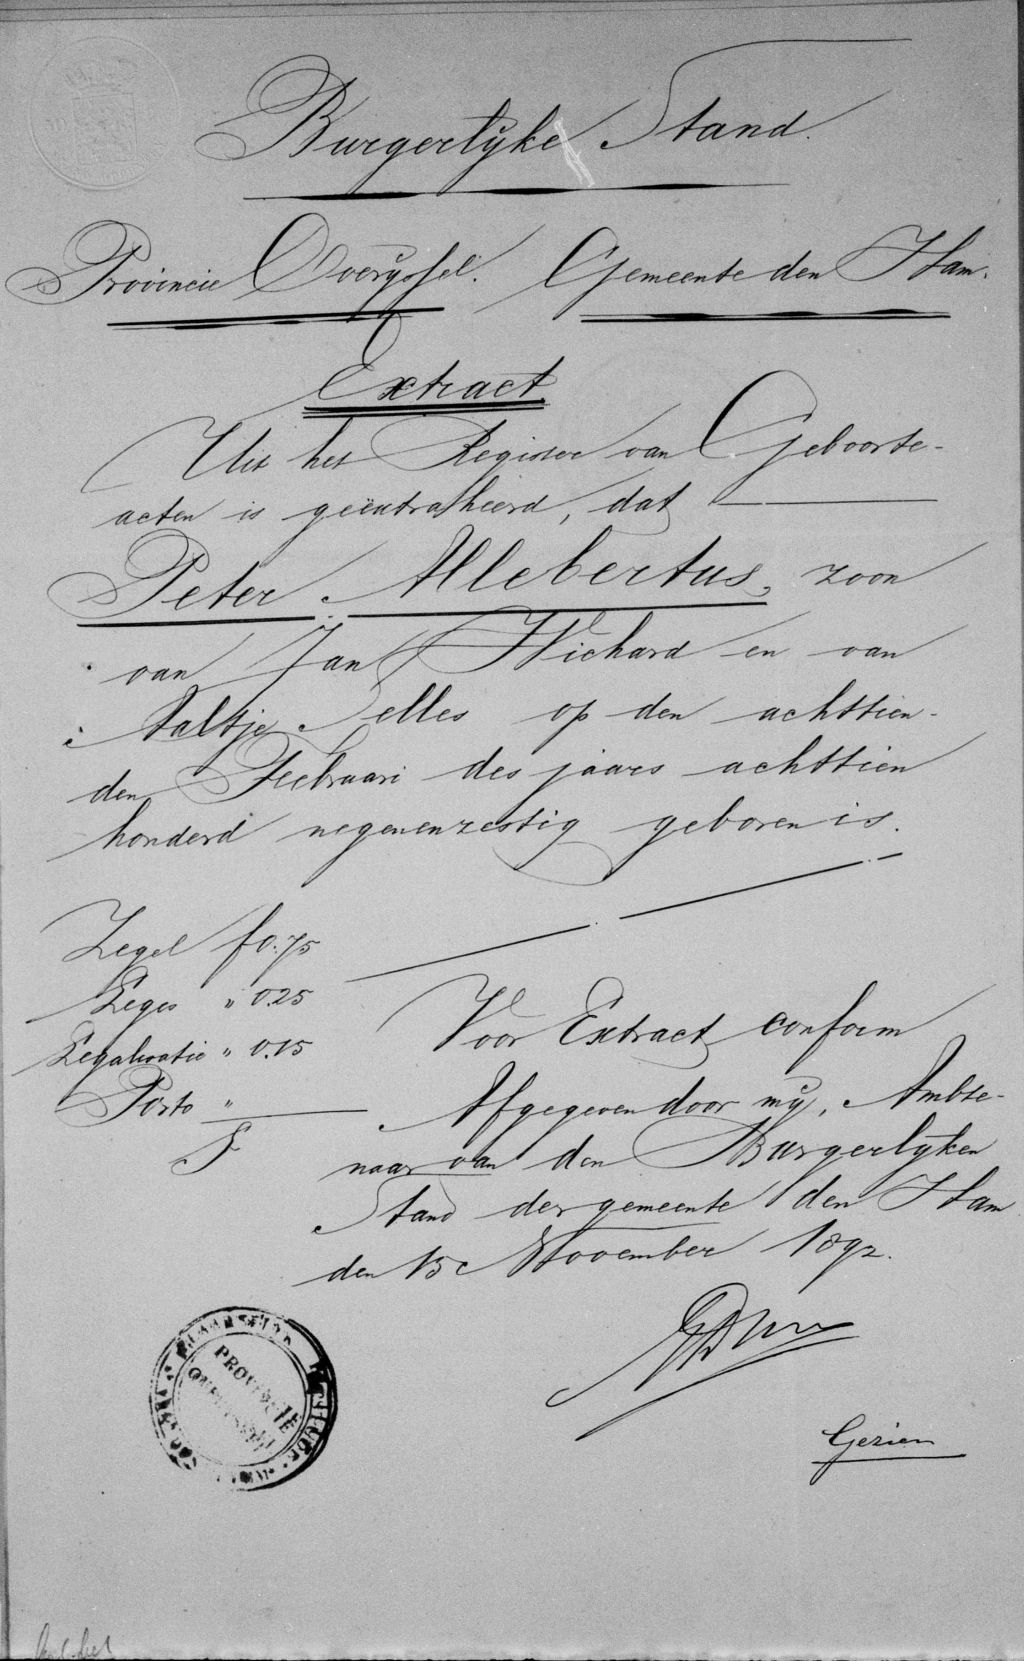 Burgerlyke Stand.
Provincie Overyssel. Gemeente den Ham.
Extract
Uit het Register van Geboorte-
acten is geëxtraheerd, dat
Peter Allebertus, zoon
van Jan Wichard en van
Aaltje Selles op den achttien-
den Feebruari des jaars achttien
honderd negenenzestig geboren is.
Zegel f 0.75
Leges " 0.25
Legalisatie " 0.15
Porto "
F
Voor Extract conform
Afgegeven door mij, Ambte-
naar van den Burgerlyken
Stand der gemeente den Ham
den 15e November 1892.
Gezien
PROVINCIE
OVERIJSSEL